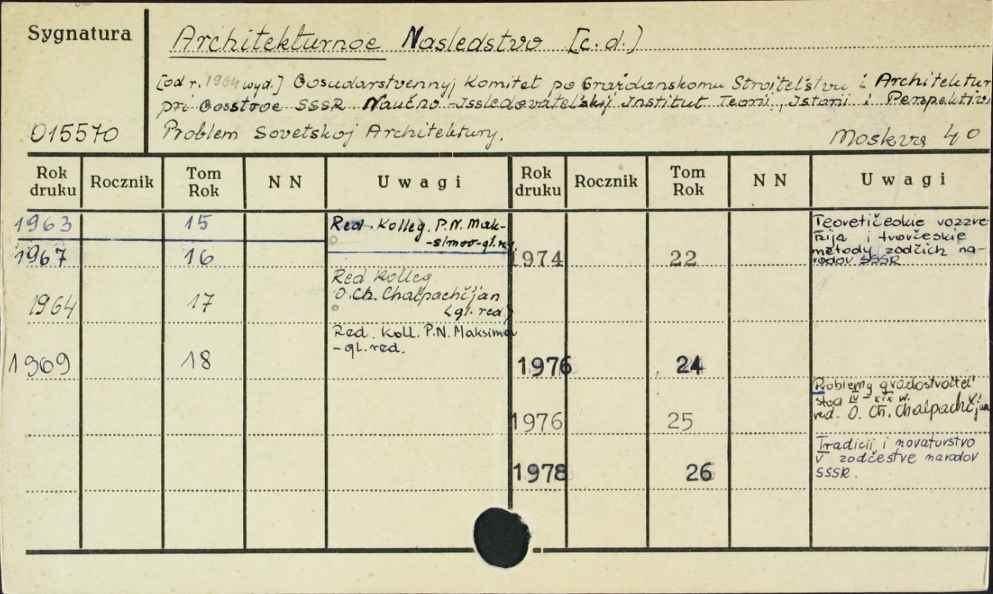 Sygnatura
Architekturnoe Nasledstvo [c.d.]
[od r. 1964 wyd.] Gosudarstvennyj Komitet po Graždanskomu Stroitel'stvu i Architektur
pri Gosstroe SSSR Naučno-Issledovatel'skij Institut Teorii, Istorii i Perspektivn
015570
Problem Sovetskoj Architektury.
Moskva 40
Rok druku Rocznik Tom Rok N N Uwagi Rok druku Rocznik Tom Rok N N Uwagi
1963 15 Red. Kolleg. P.N. Mak-
-simov-gl.
1967 16
1964 17 Red Kolleg
O.Ch. Chalpachčijan
(gl. red)
1969 18 Red. Koll. P.N. Maksimov
-gl. red.
1974 22 Teoretičeskie vozzre
nija i tvorčeskie
metody zodčich na-
rodov SSSR
1976 24
1976 25 Problemy gradostroitel'
stva IV - XIX w.
red. O. Ch. Chalpachčijan
1978 26 Tradicii i novatorstvo
v zodčestve narodov
SSSR.